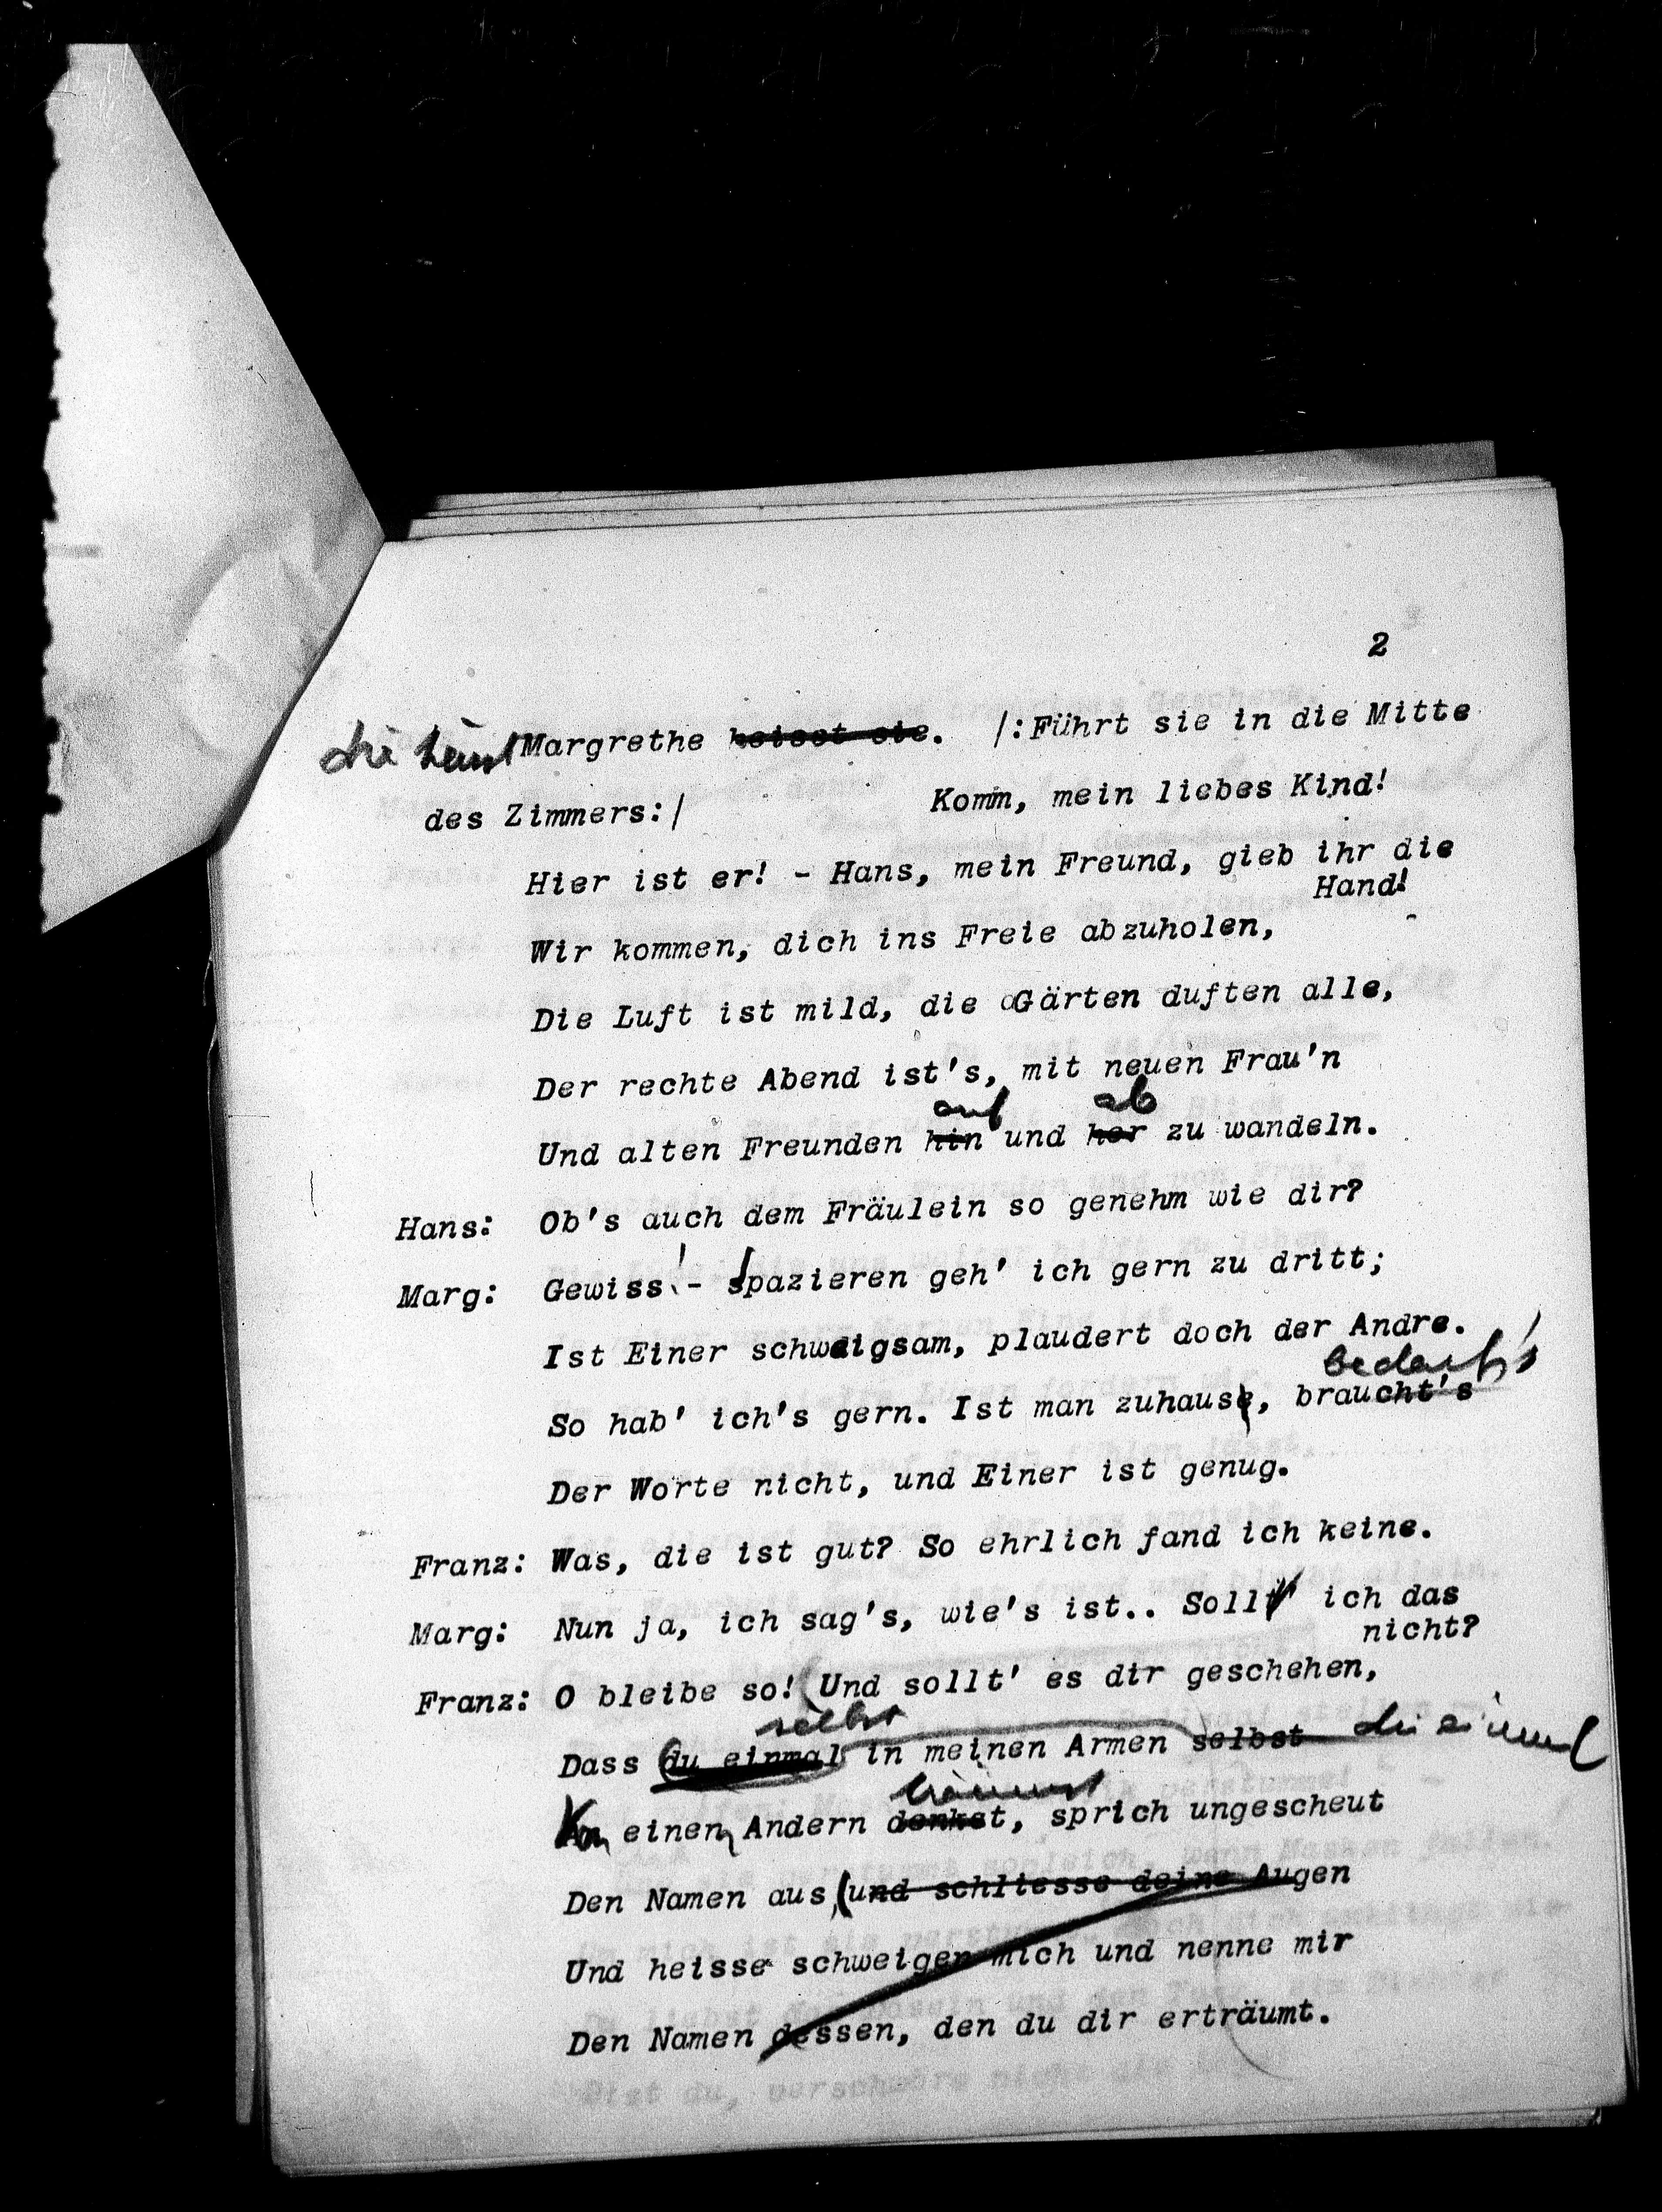 2
die heisst Margrethe heisst sie. /:Führt sie in die Mitte
des Zimmers:/ Komm, mein liebes Kind!
Hier ist er! - Hans, mein Freund, gieb ihr die
Hand!
Wir kommen, dich ins Freie abzuholen,
Die Luft ist mild, die Gärten duften alle,
Der rechte Abend ist's, mit neuen Frau'n
auf ab
Und alten Freunden hin und her zu wandeln.
Hans: Ob's auch dem Fräulein so genehm wie dir?
Marg: Gewiss! - Spazieren geh' ich gern zu dritt;
Ist Einer schweigsam, plaudert doch der Andre.
bedarf's
So hab' ich's gern. Ist man zuhause, braucht's
Der Worte nicht, und Einer ist genug.
Franz: Was, die ist gut? So ehrlich fand ich keine.
Marg: Nun ja, ich sag's, wie's ist.. Sollt' ich das
nicht?
Franz: O bleibe so! (Und sollt' es dir geschehen,
selbst
Dass du einmal in meinen Armen selbst du einmal
träumst
Von einem Andern denkst, sprich ungescheut
Den Namen aus, (und schliesse deine Augen
Und heisse schweigen mich und nenne mir
Den Namen dessen, den du dir erträumt.